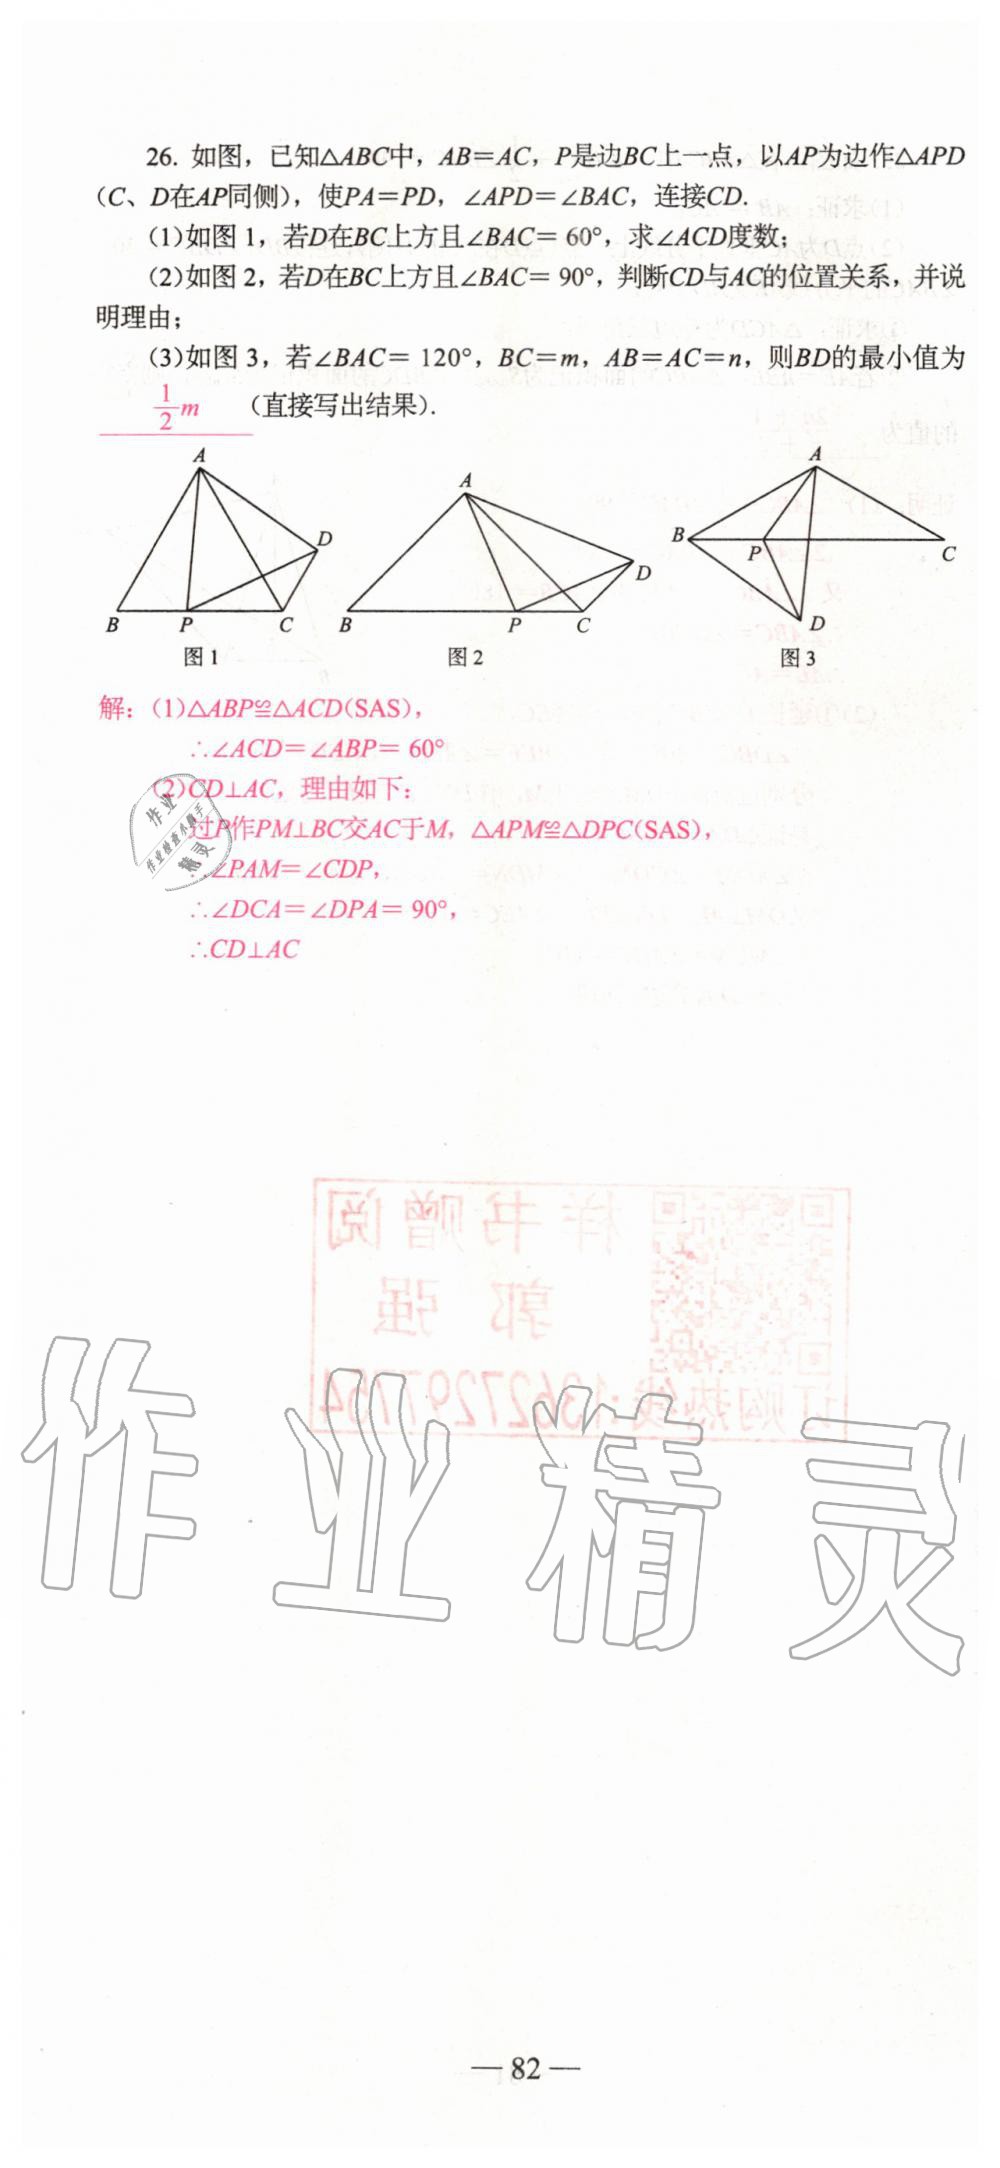 26. 如图，已知△ABC中，AB＝AC，P是边BC上一点，以AP为边作△APD
（C、D在AP同侧），使PA＝PD，∠APD＝∠BAC，连接CD.
(1)如图1，若D在BC上方且∠BAC＝60°，求∠ACD度数；
(2)如图2，若D在BC上方且∠BAC＝90°，判断CD与AC的位置关系，并说
明理由；
(3)如图3，若∠BAC＝120°，BC＝m，AB＝AC＝n，则BD的最小值为
1/2 m （直接写出结果）.
A
D
B P C
图1
A
D
B P C
图2
A
B P C
D
图3
解：(1)△ABP≌△ACD(SAS)，
∴∠ACD＝∠ABP＝60°
(2)CD⊥AC，理由如下：
过P作PM⊥BC交AC于M，△APM≌△DPC(SAS)，
∴∠PAM＝∠CDP，
∴∠DCA＝∠DPA＝90°，
∴CD⊥AC
作业
作业检查小助手
精灵
样书赠阅
郭强
订购热线:13627297764
作业精灵
— 82 —